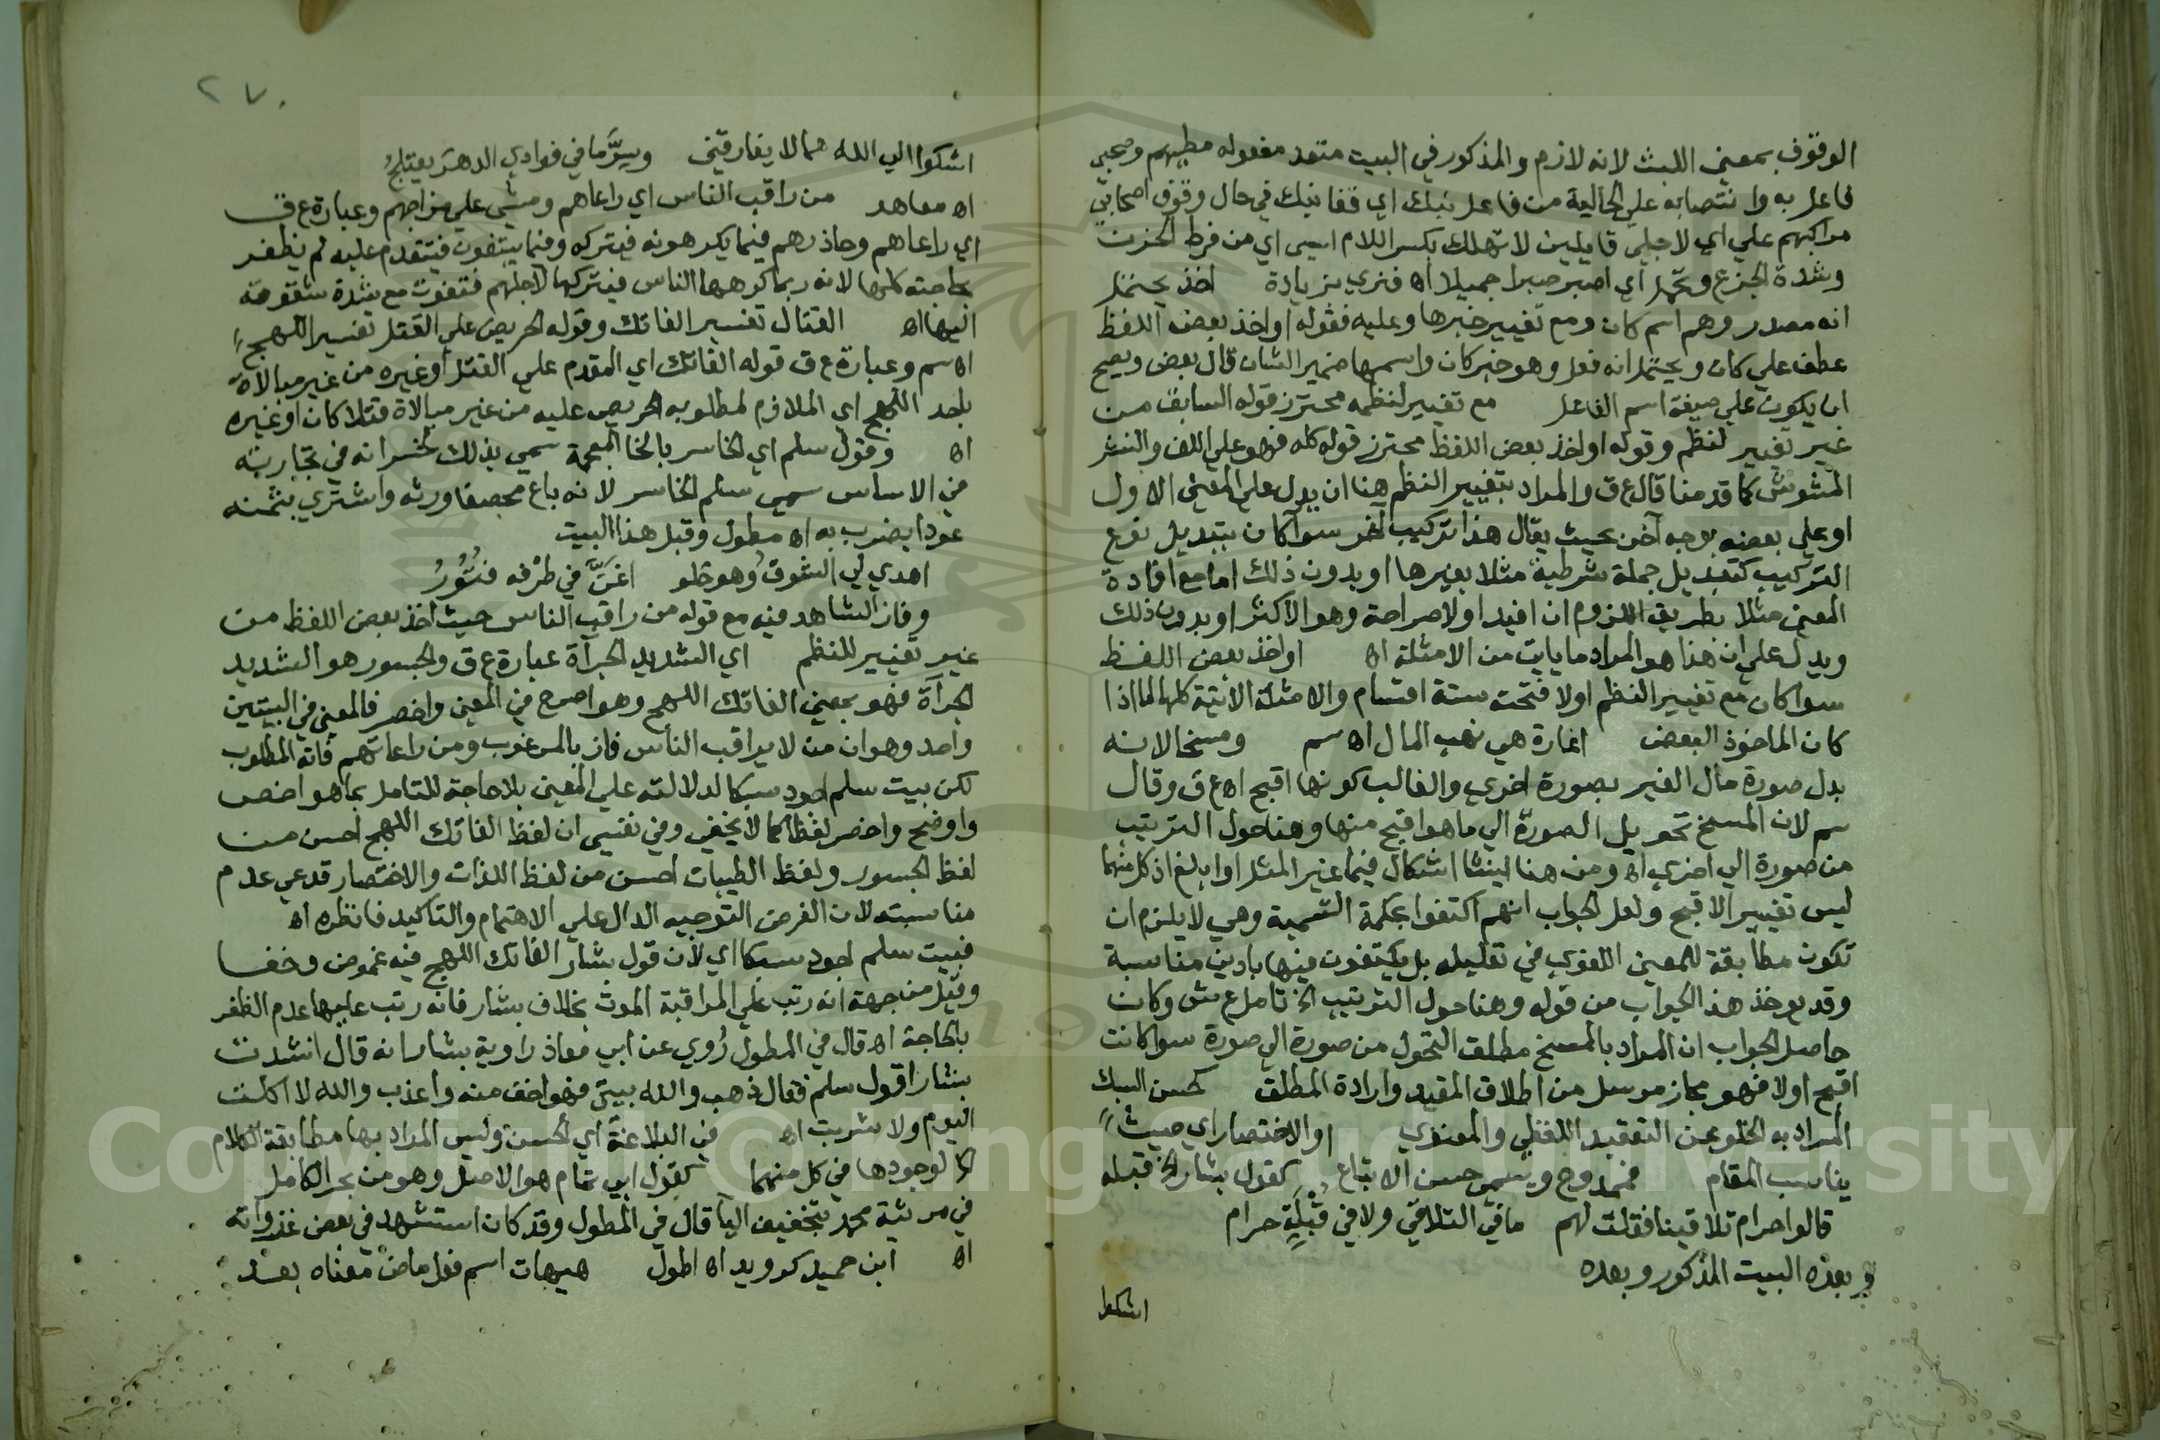 الوقوف بمعني اللبث لانه لازم والمذكور في البيت متعد مفعوله مطيهم وصحبي
فاعل به وانتصابه علي الحالية من فاعل نبك اي قفا نبك في حال وقوف اصحابي
مراكبهم علي اي لاجلي قايلين لا تهلك بكسر اللام اسي اي من فرط الحزن
وشدة الجزع وتجمل اي اصبر صبرا جميلا اه فنري بزيادة اخذ يحتمل
انه مصدر وهم اسم كان ومع تغيير خبرها وعليه فقوله او اخذ بعض اللفظ
عطف علي كان ويحتمل انه فعل وهو خبر كان واسمها ضمير الشان قال بعض ويصح
ان يكون علي صيغة اسم الفاعل مع تغيير لنظمه محترز قوله السابق من
غير تغيير لنظم وقوله او اخذ بعض اللفظ محترز قوله كله فهو علي اللف والنشر
المشوش كما قدمنا قال ع ق والمراد بتغيير النظم هنا ان يدل علي المعني الاول
او علي بعضه بوجه آخر بحيث يقال هذا تركيب آخر سوآ كان بتبديل نوع
التركيب كتبديل جملة شرطية مثلا بغيرها او بدون ذلك اما مع افادة
المعني مثلا بطريق اللزوم ان افيد اولا صراحة وهو الاكثر او بدون ذلك
ويدل علي ان هذا هو المراد ما يات من الامثلة اه او اخذ بعض اللفظ
سوا كان مع تغيير النظم اولا فتحته ستة اقسام والامثلة الاتية كلها لما اذا
كان الماخوذ البعض اغارة هي نهب المال اه سم ومسخا لانه
بدل صورة مال الغير بصورة اخري والغالب كونها اقبح اه ع ق وقال
سم لان المسخ تحويل الصورة الي ما هو اقبح منها وهنا حول الترتيب
من صورة الي اخري اه ومن هنا ينشا اشكال فيما غير المثل او ابلغ اذ كل منهما
ليس تغيير الاقبح ولعل الجواب انهم اكتفوا بحكمة التسمية وهي لا يلزم ان
تكون مطابقة للمعني اللغوي في تعليله بل يكتفون فيها بادني مناسبة
وقد يوخذ هذا الجواب من قوله وهنا حول الترتيب الخ تامل ع ش وكان
حاصل الجواب ان المراد بالمسخ مطلق التحول من صورة الي صورة سوا كانت
اقبح اولا فهو مجاز مرسل من اطلاق المقيد وارادة المطلق كحسن السبك
المراد به الخلو عن التعقيد اللفظي والمعنوي او الاختصار اي حيث
يناسب المقام فممدوح ويسمي حسن الاتباع كقول بشار الخ قبله
قالوا حرام تلاقينا فقلت لهم ما في التلاقي ولا في قبلة حرام
وبعده البيت المذكور وبعده
اشكوا
٢٧٠
اشكوا الي الله هما لا يفارقني وسرا ما في فوادي الدهر يعتلج
اه معاهد من راقب الناس اي راعاهم ومشي علي مزاجهم وعبارة ع ق
اي راعاهم وحاذرهم فيما يكرهونه فيتركه وفيما يبتغون فيتقدم عليه لم يظفر
بحاجته كلها لانه ربما كرهها الناس فيتركها لاجلهم فتفوت مع شدة شقوقه
اليها اه القتال تفسير الفاتك وقوله الحريص علي القتل تفسير اللهج
اه سم وعبارة ع ق قوله الفاتك اي المقدم علي القتل او غيره من غير مبالاة
باحد اللهج اي الملازم لمطلوبه الحريص عليه من غير مبالاة قتلا كان او غيره
اه وقول سلم اي الخاسر بالخا المعجمة سمي بذلك لخسرانه في تجارته
في الاساس سمي سلم الخاسر لانه باع مصحفا ورثه واشتري بثمنه
عودا يضرب به اه مطول وقبل هذا البيت
اهدي لي الشوق وهو خلو اغن في طرفه فتور
وفاز الشاهد فيه مع قوله من راقب الناس حيث اخذ بعض اللفظ من
غير تغيير للنظم اي الشديد الجرآة عبارة ع ق والجسور هو الشديد
الجرآة فهو بمعني الفاتك اللهج وهو اصرح في المعني واخصر فالمعني في البيتين
واحد وهو ان من لا يراقب الناس فاز بالمرغوب ومن راعاهم فاته المطلوب
لكن بيت سلم اجود سبكا لدلالته علي المعني بلا حاجة للتامل بما هو اخص
واوضح واخصر لفظا كما لا يخفي وفي نفسي ان لفظ الفاتك اللهج احسن من
لفظ الجسور ولفظ الطيبات احسن من لفظ اللذات والاختصار قد عي عدم
مناسبته لان الغرض التوجيه الدال علي الاهتمام والتاكيد فانظره اه
فبيت سلم اجود سبكا اي لان قول بشار الفاتك اللهج فيه غموض وخفا
وقيل من جهة انه رتب علي المراقبة الموت بخلاف بشار فانه رتب عليها عدم الظفر
بالحاجة اه قال في المطول روي عن ابي معاذ راوية بشار انه قال انشدت
بشارا قول سلم فقال ذهب والله بيتي فهو اخف منه واعذب والله لا اكلت
اليوم ولا شربت اه في البلاغة اي الحسن وليس المراد بها مطابقة الكلام
الخ لوجودها في كل منهما كقول ابي تمام هو الاصل وهو من بحر الكامل
في مرثية محمد بتخفيف اليآ قال في المطول وقد كان استشهد في بعض غزواته
اه ابن حميد كرويد اه اطول هيهات اسم فعل ماض معناه بعد